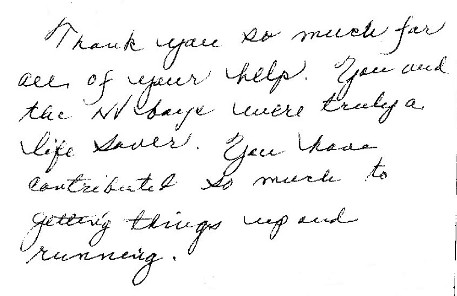 Thank you so much for
all of your help. You and
the NV boys were truly a
life saver. You have
contributed so much to
getting things up and
running.